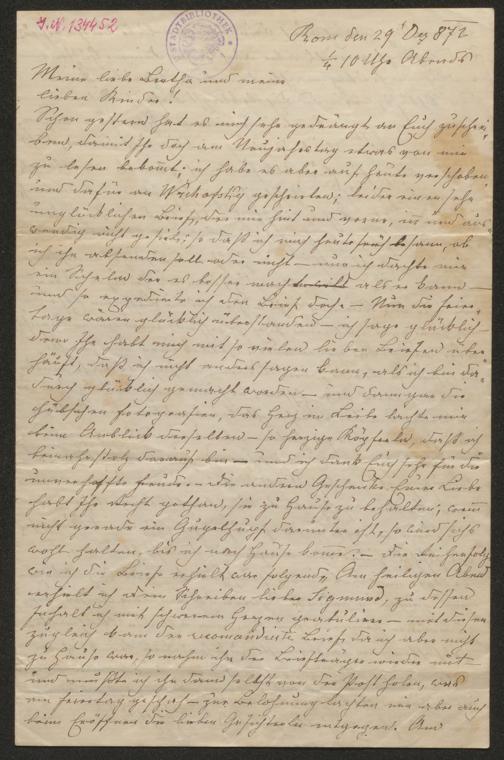 J.N. 134452
STADTBIBLIOTHEK
Rom den 29' Dez 872
1/4 10 Uhr Abends
Meine liebe Bertha und meine
lieben Kinder!
Schon gestern hat es mich sehr gedrängt an Euch zuschrei-
ben, damit Ihr doch am Neujahrstag etwas von mir
zu lesen bekommt; ich habe es aber auf heute verschoben
und dafür an geschrieben; leider einen sehr
unglücklichen Brief, der mir hint und vorne, in und aus-
wendig nicht gefiel; so daß ich mich heute früh besann, ob
ich ihn absenden soll oder nicht – und ich dachte mir
ein Schelm der es besser macht als er kann –
und so expedirte ich den Brief doch – Nun die Feier-
tage wären glücklich überstanden – ich sage glücklich
denn Ihr habt mich mit so vielen lieben Briefen über-
häuft, daß ich nicht anders sagen kann, als ich bin da-
durch glücklich gemacht worden – und die
hübschen Fotografien, das Herz im Leibe lachte mir
beim Anblick derselben – so herzige Köpferln, daß ich
beinahe stolz darauf bin – und ich dank Euch sehr für die
unverhoffte Freude – die andern Geschenke Eurer Liebe
habt Ihr Recht gethan, sie zu Hause zu behalten, wenn
nicht gerade ein Gugelhupf darunter ist, so wird sichs
wohl halten, bis ich nach Hause komme. – Die Reihenfolge
wie ich die Briefe erhielt war folgende, Am heiligen Abend
erhielt ich Dein Schreiben lieber Sigmund, zu dessen
Inhalt ich mit schwerem Herzen gratulire – mit diesem
zugleich kam der recomandirte Brief; da ich aber nicht
zu Hause war, so nahm ihn der Briefträger wieder mit
und mußte ich ihn dann selbst von der Post holen, was
am Feiertag geschah – zur Belohnung lachten mir aber auch
beim Eröffnen die lieben Gesichterln entgegen. Am